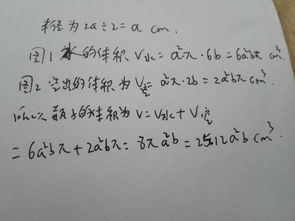 半径为2a÷2=a cm.
图1 水的体积V水=a²π·6b=6a²bπ cm³
图2 空出的体积为V空=a²π·2b=2a²bπ cm³.
所以瓶子的体积为V=V水+V空
=6a²bπ+2a²bπ=8πa²b=25.12a²b cm³.